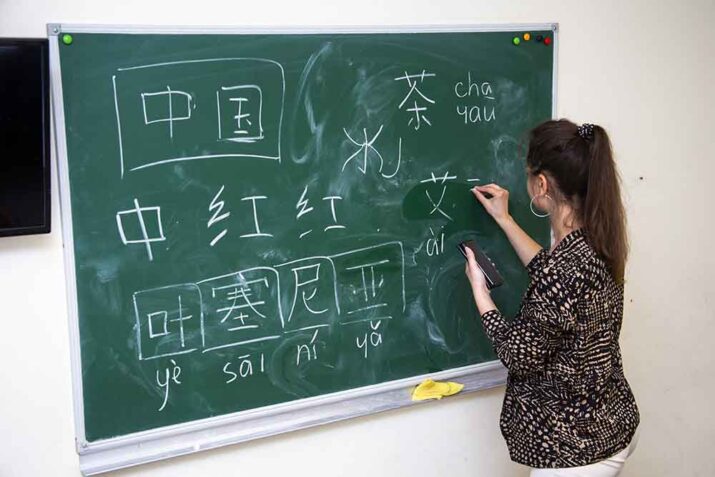 中国
茶 cha
yāu
中 红 红
艾
ài
叶塞尼亚
yè sāi ní yǎ